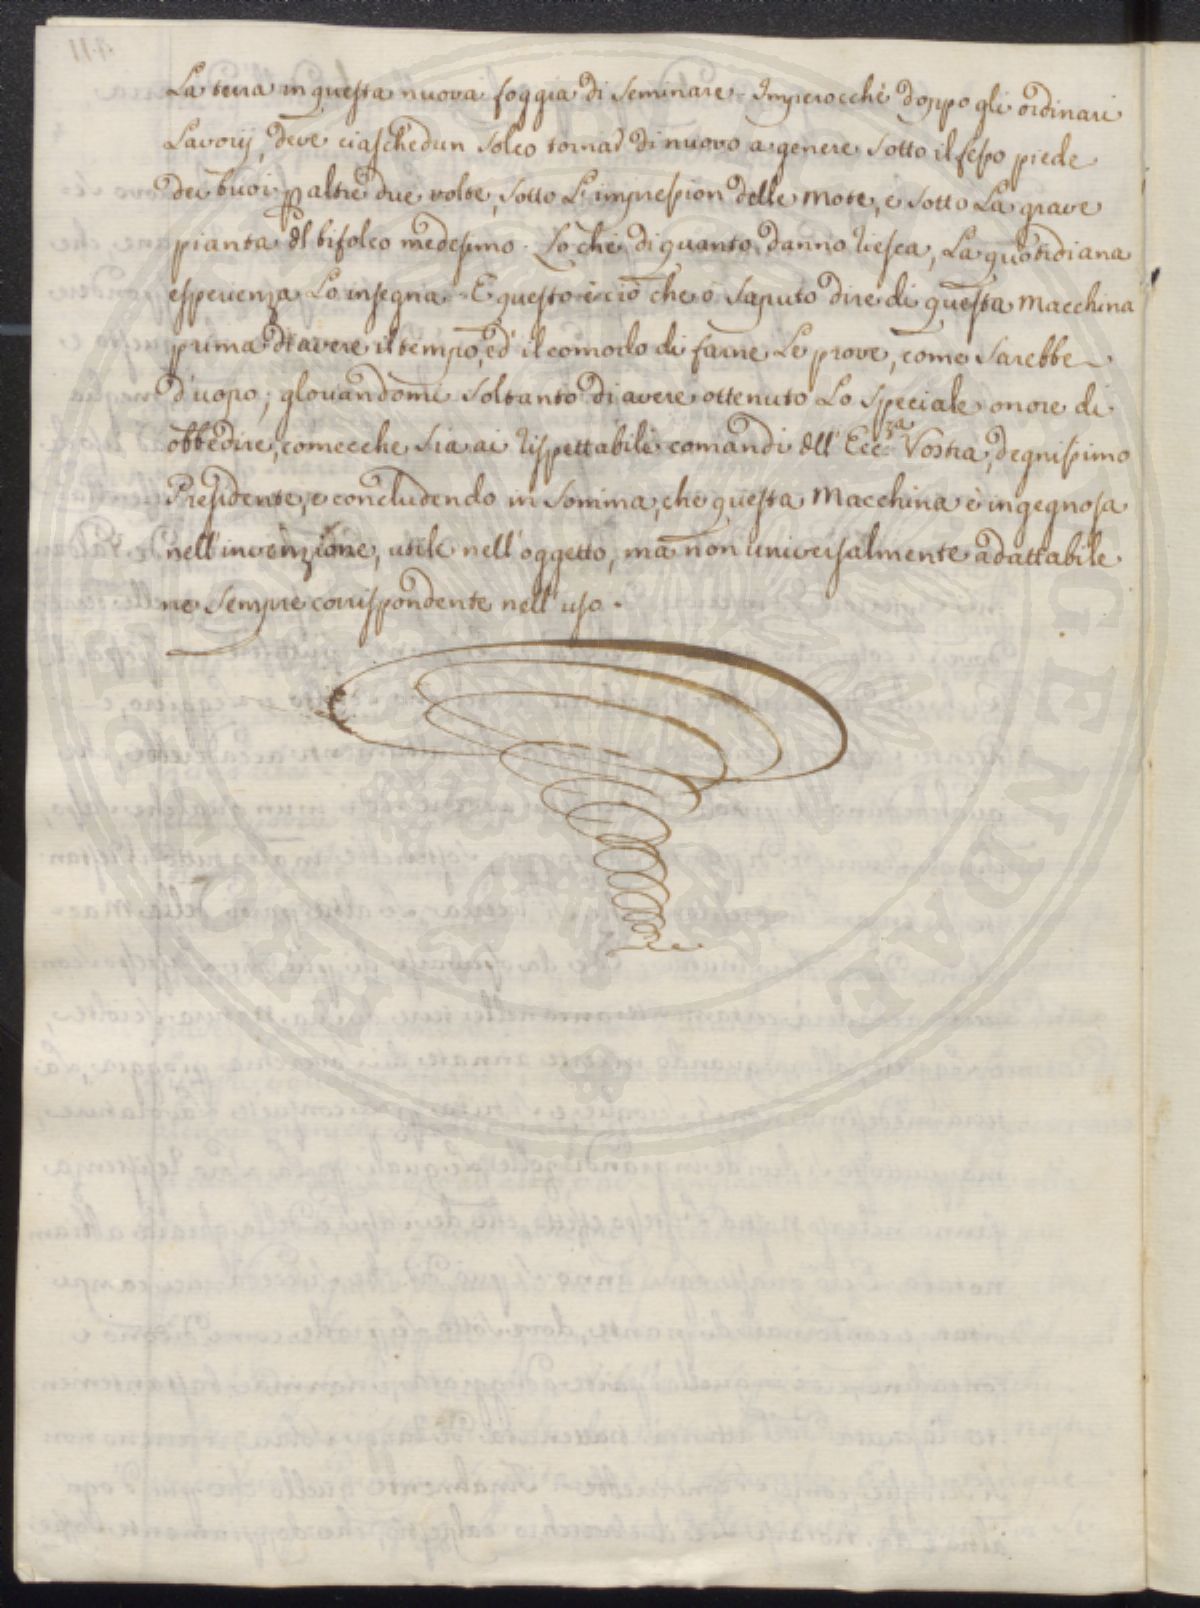 La terra in questa nuova foggia di seminare. Imperocchè doppo gli ordinari
Lavorij, deve ciaschedun solco tornar di nuovo a gemere sotto il fesso piede
dei buoi p altre due volte, sotto L'impression delle rote, e sotto La grave
pianta dl bifolco medesimo. Lo che di quanto danno riesca, La quotidiana
esperienza Lo insegna. E questo è ciò che ò saputo dire di questa Macchina
prima di avere il tempo, ed il comodo di farne Le prove, come sarebbe
d'uopo; giovandomi soltanto di avere ottenuto Lo speciale onore di
obbedire, comecche sia ai rispettabili comandi dll' Ecc.za Vostra, degnissimo
Presidente, e concludendo in somma, che questa Macchina è ingegnosa
nell'invenzione, utile nell'oggetto, ma non universalmente adattabile
ne sempre corrispondente nell'uso.